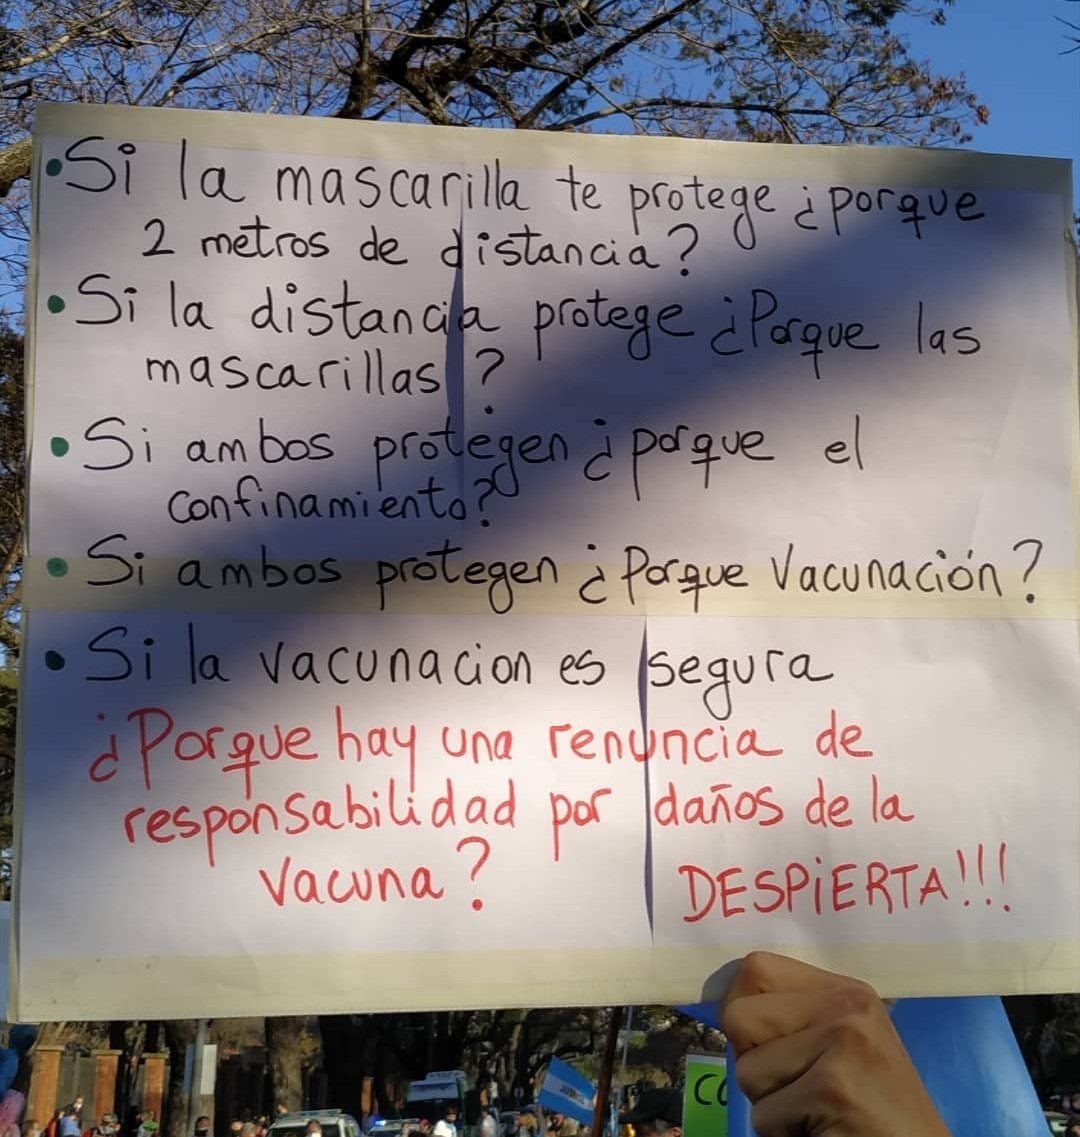 •Si la mascarilla te protege ¿porque
2 metros de distancia?
•Si la distancia protege ¿Porque las
mascarillas?
•Si ambos protegen ¿porque el
confinamiento?
•Si ambos protegen ¿Porque Vacunación?
•Si la vacunacion es segura
¿Porque hay una renuncia de
responsabilidad por daños de la
vacuna?
DESPiERTA!!!